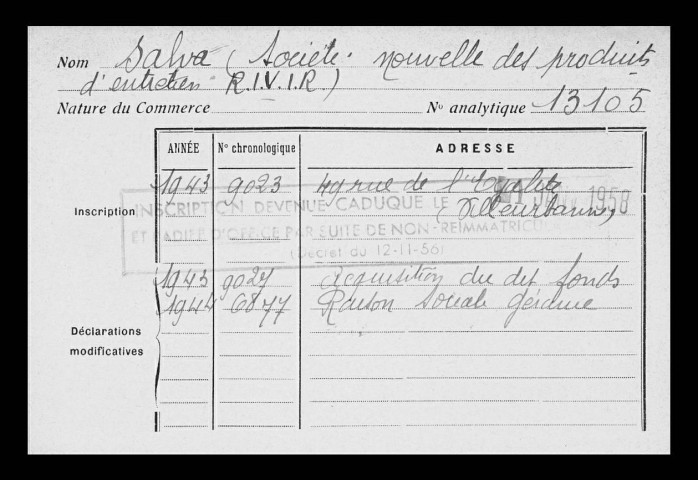 Nom Salva (Société nouvelle des produits
d'entretien R.I.V.I.R.)
Nature du Commerce N° analytique 13105
ANNÉE N° chronologique ADRESSE
Inscription 1943 9023 49 rue de l'Egalité
(Villeurbanne)
INSCRIPTION DEVENUE CADUQUE LE 1958
ET RADIEE D'OFFICE PAR SUITE DE NON-REIMMATRICU
(Decret du 12-11-56)
1943 9027 Acquisition du dit fonds
1944 6877 Raison sociale gérance
Déclarations
modificatives